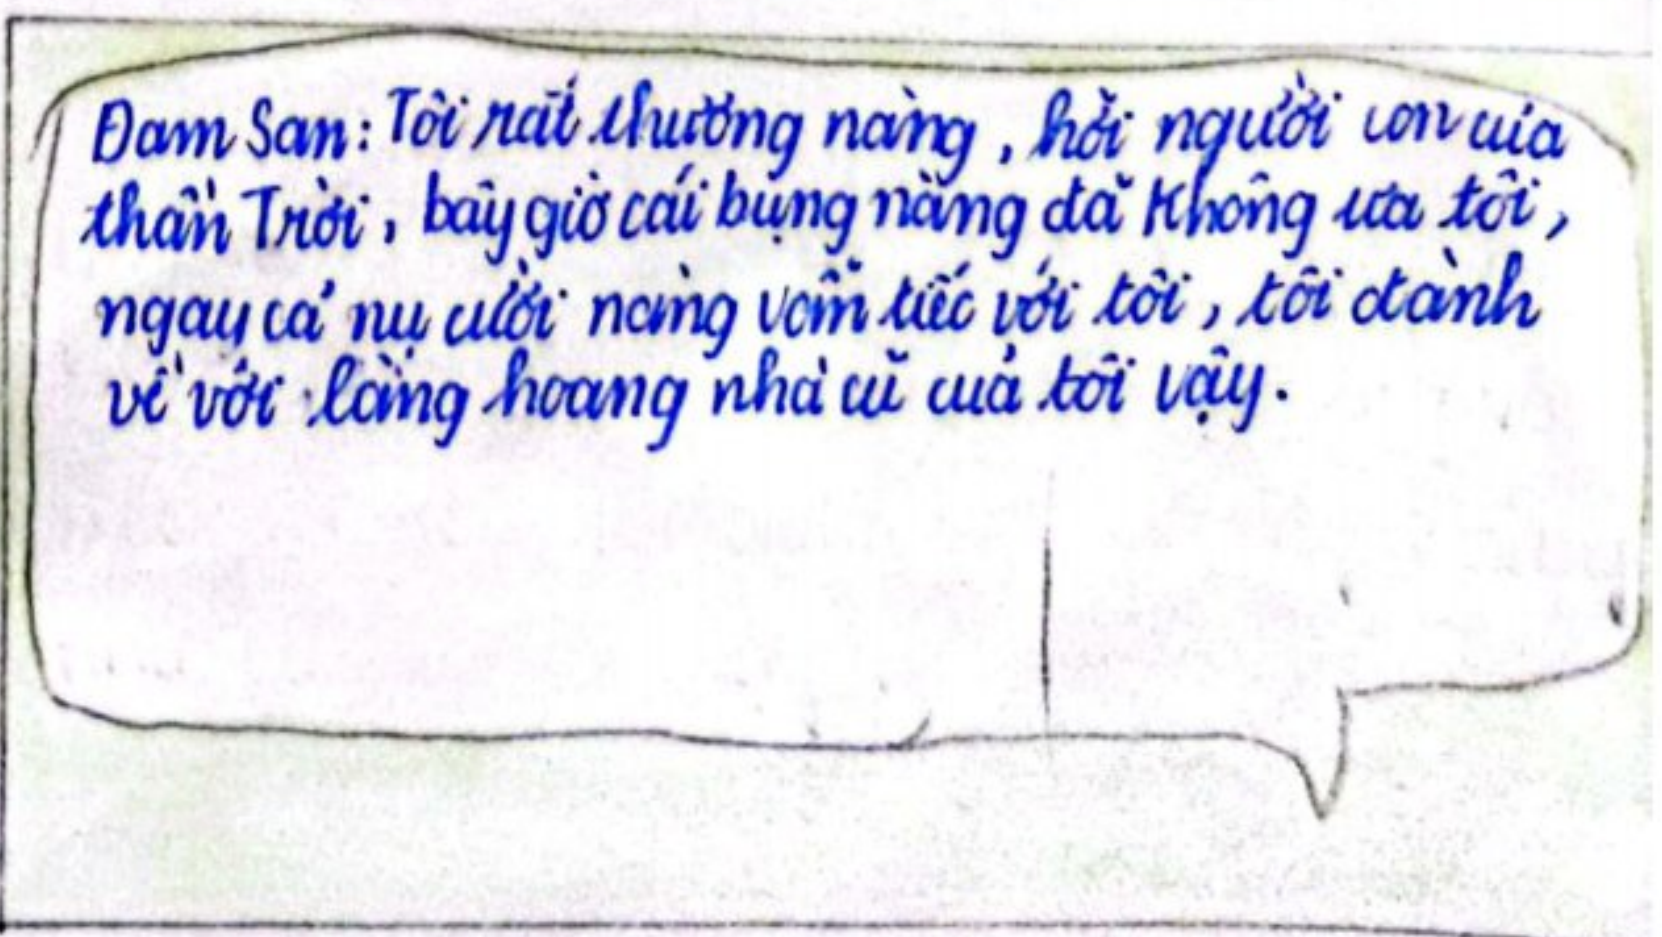 Đam San: Tôi rất thương nàng, hỡi người con của
thần Trời, bây giờ cái bụng nàng đã không ưa tôi,
ngay cả nụ cười nàng vẫn tiếc với tôi, tôi đành
về với làng hoang nhà cũ của tôi vậy.